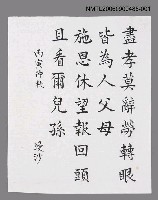 NMTL20060900486-001
盡孝莫辭勞轉眼
皆為人父母
施恩休望報回頭
且看爾兒孫
丙寅仲秋